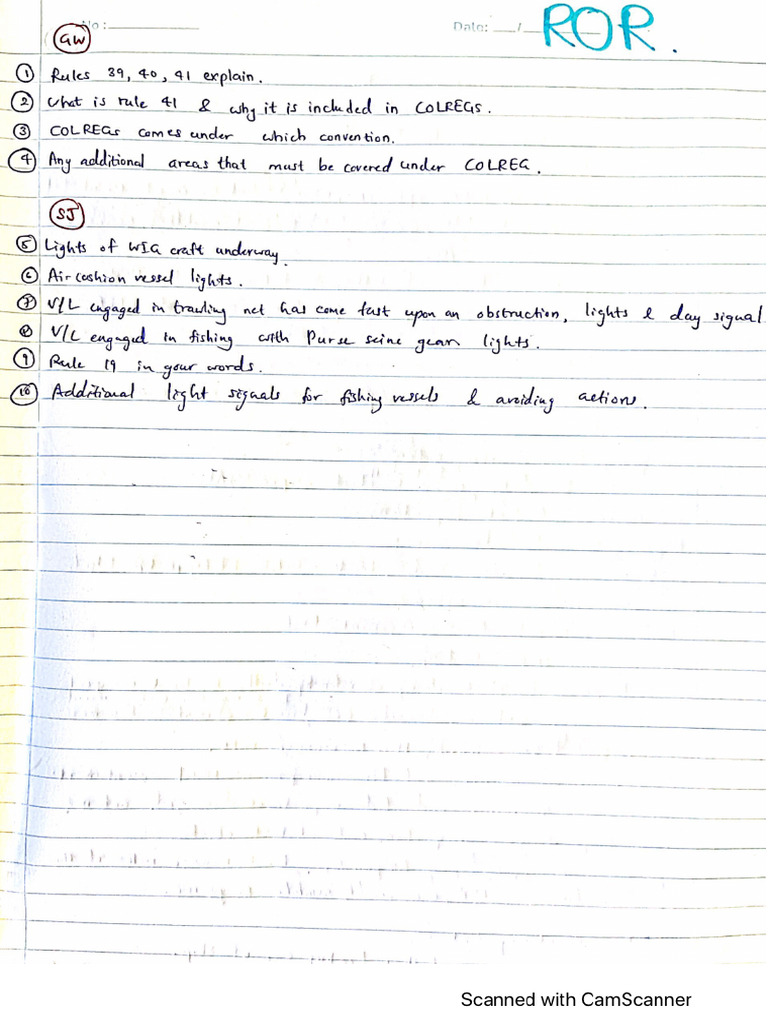 No : Date: / ROR.
GW
① Rules 39, 40, 41 explain.
② What is rule 41 & why it is included in COLREGS.
③ COLREGs comes under which convention.
④ Any additional areas that must be covered under COLREG.
SJ
⑤ Lights of WIG craft underway.
⑥ Air cashion vessel lights.
⑦ V/L engaged in trawling net has come fast upon an obstruction, lights & day signal
⑧ V/L engaged in fishing with Purse seine gear lights.
⑨ Rule 19 in your words.
⑩ Additional light signals for fishing vessels & avoiding actions.
Scanned with CamScanner